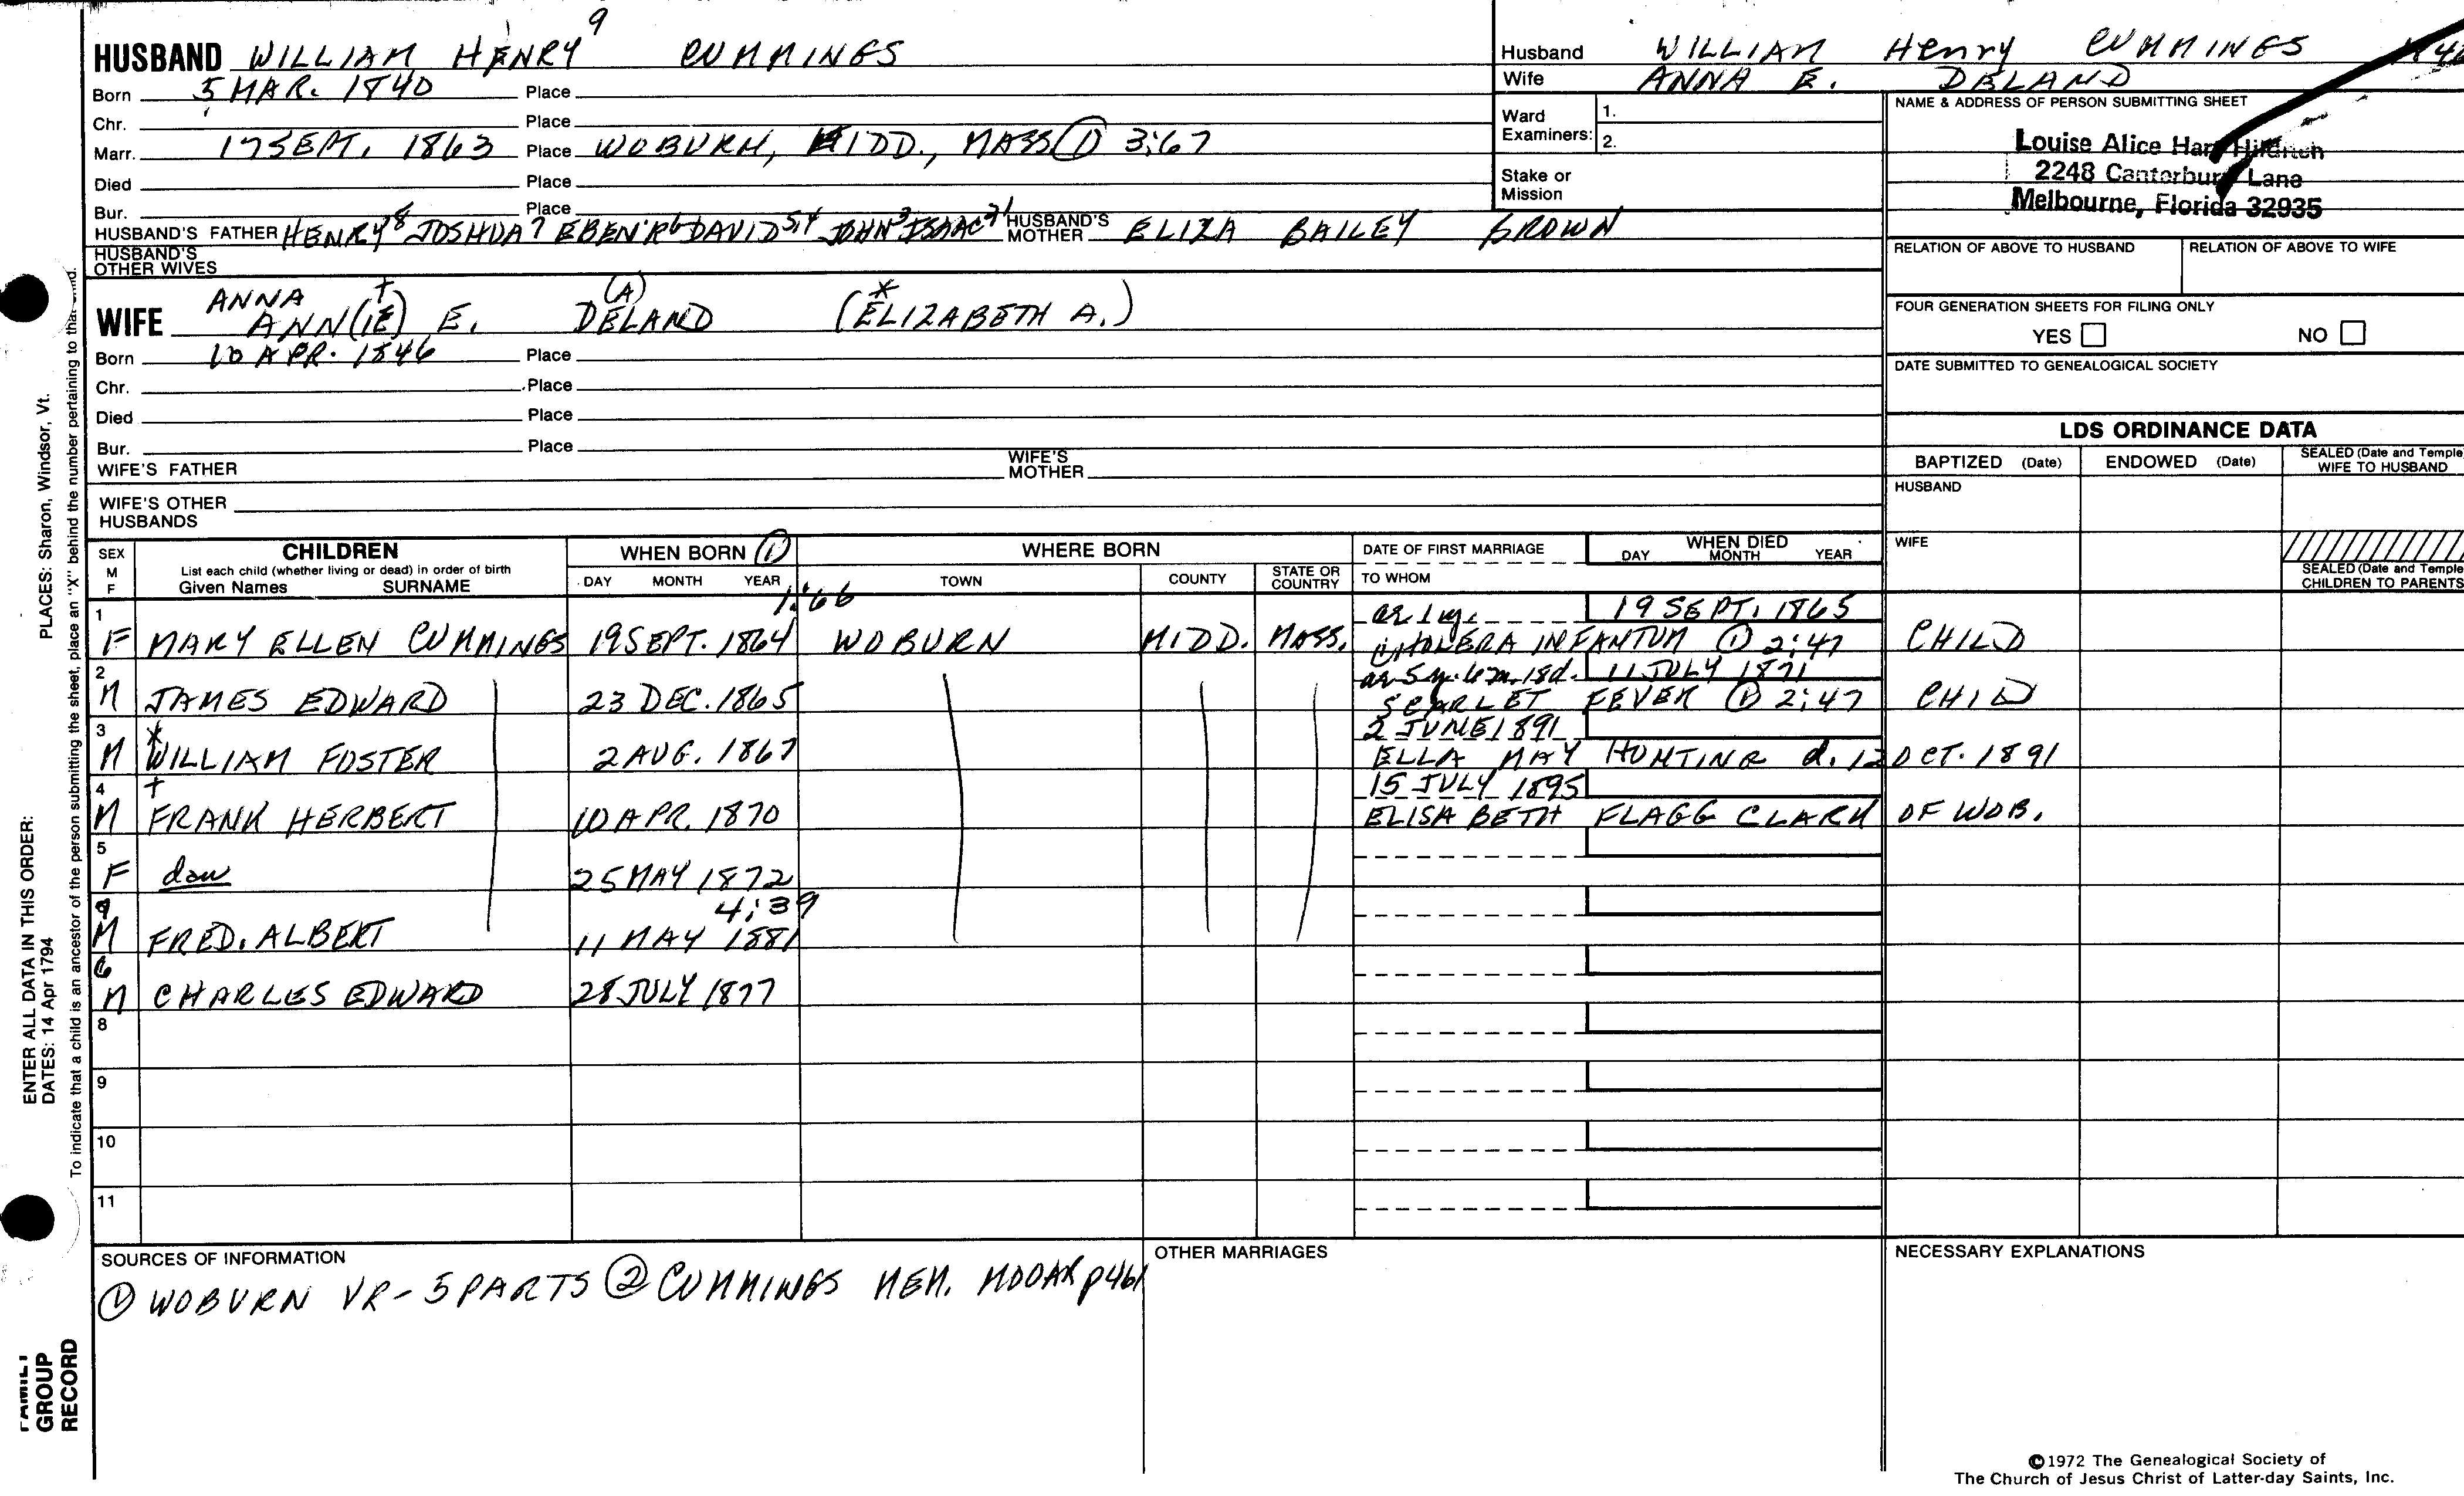 9
HUSBAND WILLIAM HENRY CUMMINGS
Born 5 MAR. 1840 Place
Chr. Place
Marr. 17 SEPT. 1863 Place WOBURN, MIDD., MASS ① 3:67
Died Place
Bur. Place
HUSBAND'S FATHER HENRY8 JOSHUA7 EBEN'R6 DAVID5,4 JOHN3 ISAAC2,1 HUSBAND'S MOTHER ELIZA BAILEY BROWN
HUSBAND'S OTHER WIVES
Husband WILLIAM Henry CUMMINGS
Wife ANNA E. DELAND
Ward Examiners: 1.
2.
Stake or Mission
NAME & ADDRESS OF PERSON SUBMITTING SHEET
Louise Alice Hildrich
2248 Canterbury Lane
Melbourne, Florida 32935
RELATION OF ABOVE TO HUSBAND RELATION OF ABOVE TO WIFE
FOUR GENERATION SHEETS FOR FILING ONLY
YES NO
DATE SUBMITTED TO GENEALOGICAL SOCIETY
ANNA + (A) *
WIFE ANN(IE) E. DELAND (ELIZABETH A.)
Born 10 APR. 1846 Place
Chr. Place
Died Place
Bur. Place
WIFE'S FATHER WIFE'S MOTHER
WIFE'S OTHER HUSBANDS
LDS ORDINANCE DATA
BAPTIZED (Date) ENDOWED (Date) SEALED (Date and Temple) WIFE TO HUSBAND
HUSBAND
WIFE
SEALED (Date and Temple) CHILDREN TO PARENTS
SEX M F CHILDREN WHEN BORN ① WHERE BORN DATE OF FIRST MARRIAGE WHEN DIED
List each child (whether living or dead) in order of birth DAY MONTH YEAR
Given Names SURNAME DAY MONTH YEAR TOWN COUNTY STATE OR COUNTRY TO WHOM
1 1:66 ae 1 y. 19 SEPT. 1865
F MARY ELLEN CUMMINGS 19 SEPT. 1864 WOBURN MIDD. MASS. CHOLERA INFANTUM ① 2:47 CHILD
2 ae 5 y. 6 m. 18 d. 11 JULY 1871
M JAMES EDWARD 23 DEC. 1865 SCARLET FEVER ① 2:47 CHILD
3 * 2 JUNE 1891
M WILLIAM FOSTER 2 AUG. 1867 ELLA MAY HUNTING d. 12 OCT. 1891
4 + 15 JULY 1895
M FRANK HERBERT 10 APR. 1870 ELISABETH FLAGG CLARK OF WOB.
5
F dau 25 MAY 1872
4:39
M FRED. ALBERT 11 MAY 1881
6
M CHARLES EDWARD 28 JULY 1877
8
9
10
11
SOURCES OF INFORMATION OTHER MARRIAGES NECESSARY EXPLANATIONS
① WOBURN VR - 5 PARTS ② CUMMINGS MEM. MOOAR p461
©1972 The Genealogical Society of
The Church of Jesus Christ of Latter-day Saints, Inc.
PLACES: Sharon, Windsor, Vt.
ENTER ALL DATA IN THIS ORDER:
DATES: 14 Apr 1794
To indicate that a child is an ancestor of the person submitting the sheet, place an "X" behind the number pertaining to that child.
FAMILY
GROUP
RECORD